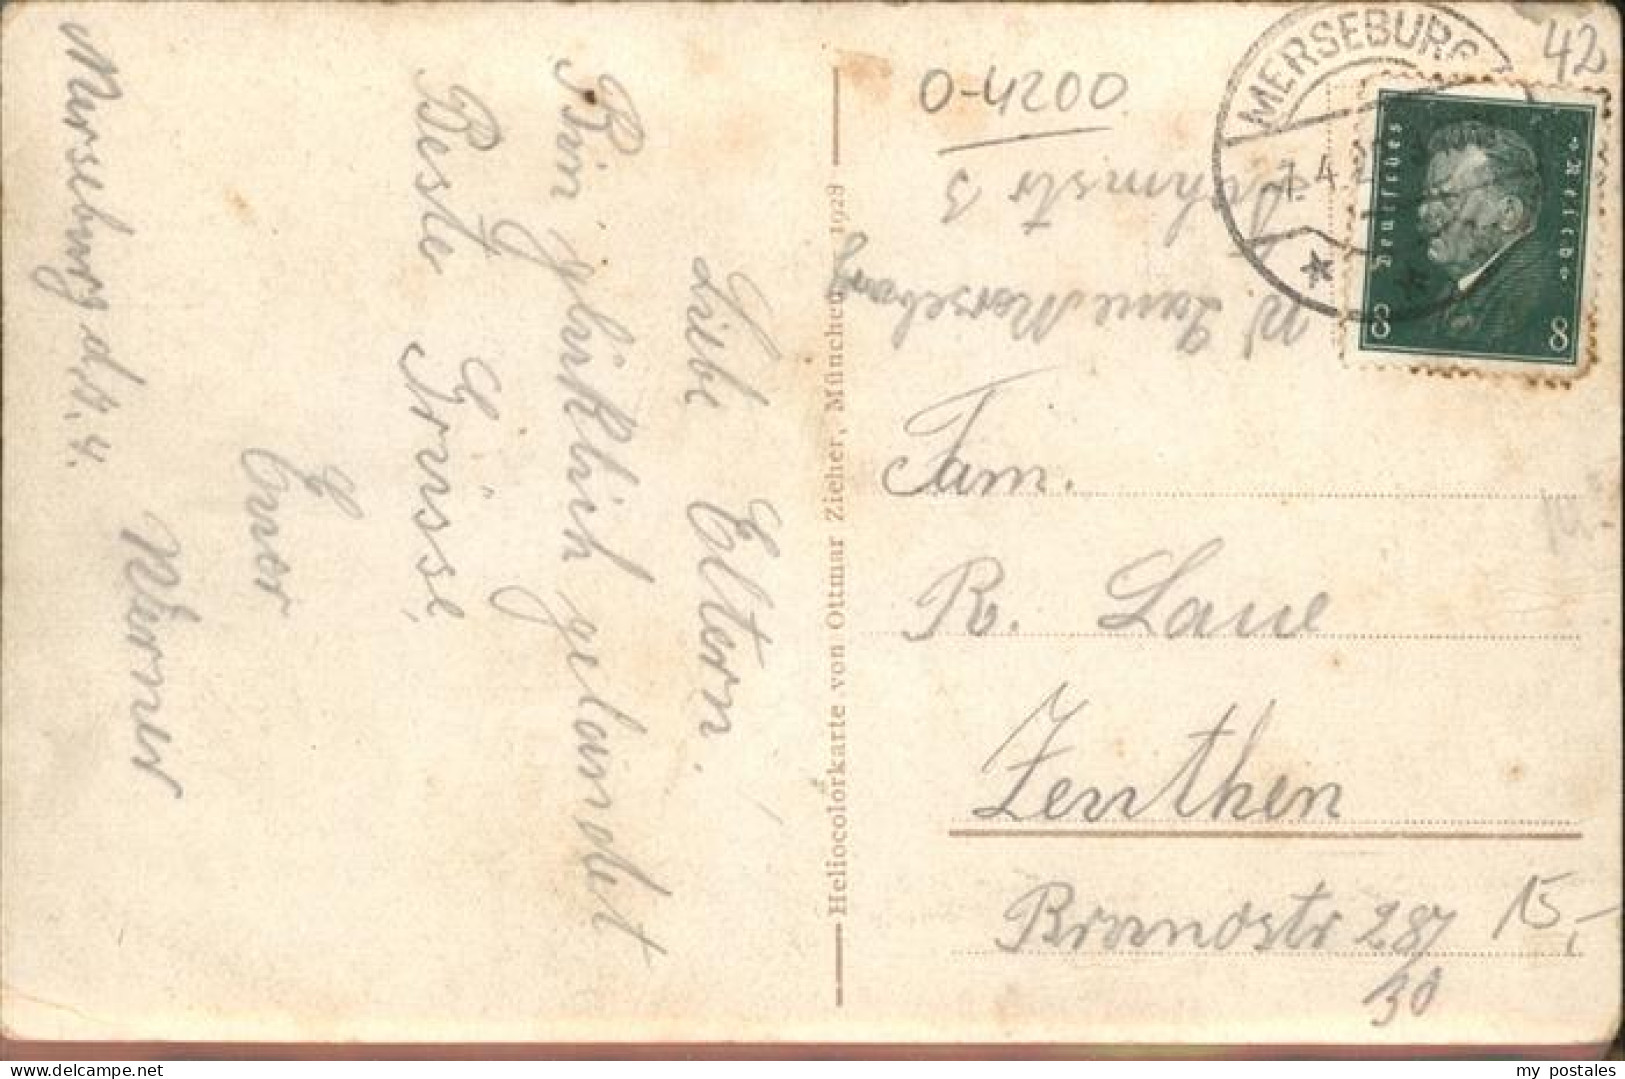 Merseburg d. 7. 4.
Liebe Eltern.
Bin glücklich gelandet
Beste Grüsse
Euer
Werner
Heliocolorkarte von Ottmar Zieher, München 1923
0-4200
42
MERSEBURG
7.4.2
Deutsches
Reich
8
8
W. Laue Merseburg
3
Fam.
R. Laue
Zeuthen
Brandstr 287
30
15,-
my_postales